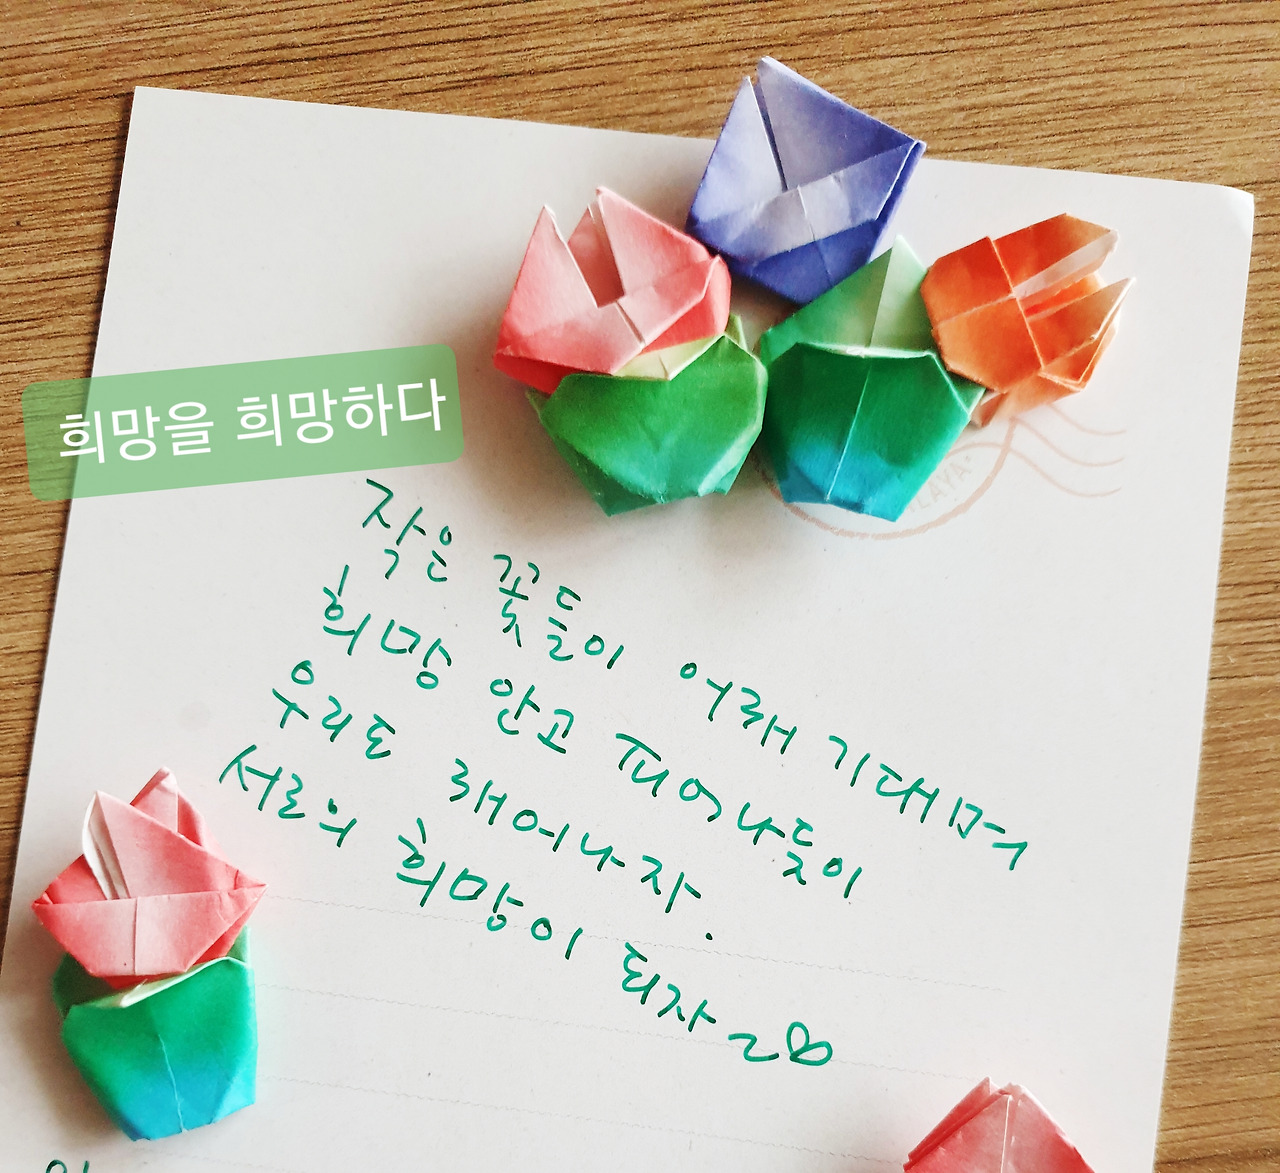 희망을 희망하다
작은 꽃들이 어깨 기대며
희망 안고 피어나듯이
우리도 깨어나자.
서로의 희망이 되자~♡